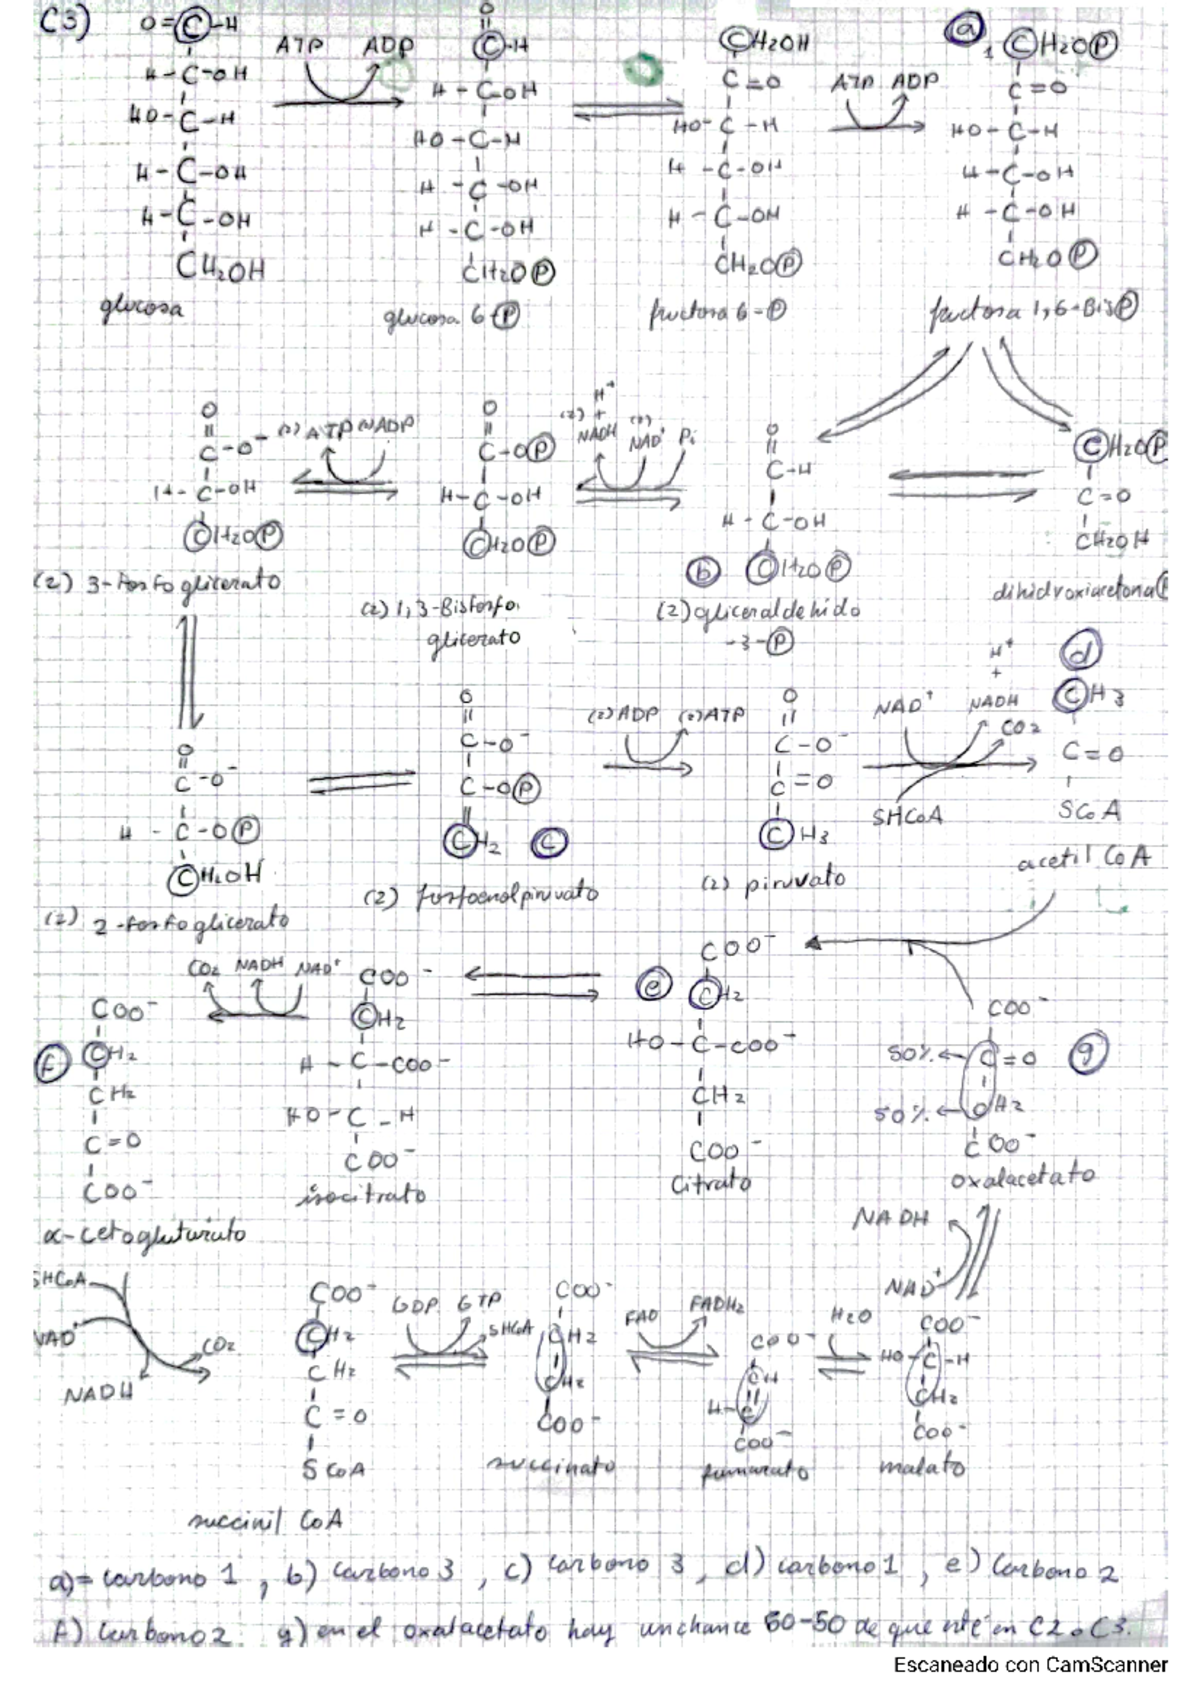 C3)
O=C-H
H-C-OH
HO-C-H
H-C-OH
H-C-OH
CH2OH
glucosa
ATP ADP
O
C-H
H-C-OH
HO-C-H
H-C-OH
H-C-OH
CH2OP
glucosa 6-P
CH2OH
C=O
HO-C-H
H-C-OH
H-C-OH
CH2OP
fructosa 6-P
ATP ADP
a
1 CH2OP
C=O
HO-C-H
H-C-OH
H-C-OH
CH2OP
fructosa 1,6-BisP
O
C-O-
H-C-OH
CH2OP
(2) 3-Fosfoglicerato
(2) ATP (2) ADP
O
C-OP
H-C-OH
CH2OP
(2) 1,3-Bisfosfo
glicerato
H+
(2) +
NADH
(2)
NAD+
Pi
O
C-H
H-C-OH
b CH2OP
(2) gliceraldehido
-3-P
CH2OP
C=O
CH2OH
dihidroxiacetona P
O
C-O-
H-C-OP
CH2OH
(2) 2-fosfoglicerato
O
C-O-
C-OP
CH2 c
(2) fosfoenolpiruvato
(2) ADP (2) ATP
O
C-O-
C=O
CH3
(2) piruvato
NAD+ NADH
+
H+
CO2
SHCoA
d
CH3
C=O
SCoA
acetil CoA
CO2 NADH NAD+
COO-
f CH2
CH2
C=O
COO-
α-cetogluturato
COO-
CH2
H-C-COO-
HO-C-H
COO-
isocitrato
COO-
e CH2
HO-C-COO-
CH2
COO-
Citrato
COO-
50% ← C=O g
50% ← CH2
COO-
oxalacetato
NADH
NAD+
SHCoA
NAD+
NADH
CO2
COO-
CH2
CH2
C=O
SCoA
succinil CoA
GDP GTP
SHCoA
COO-
CH2
CH2
COO-
succinato
FAD FADH2
COO-
CH
H-C
COO-
fumarato
H2O
COO-
HO-C-H
CH2
COO-
malato
a)= carbono 1, b) Carbono 3, c) carbono 3, d) carbono 1, e) Carbono 2
f) Carbono 2 g) en el oxalacetato hay un chance 50-50 de que esté en C2 o C3.
Escaneado con CamScanner